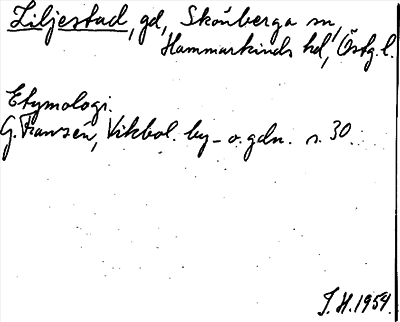 Liljestad, gd, Skönberga sn,
Hammarkinds hd, Östg.l.
Etymologi.
G. Franzén, Vikbol. by- o. gdn. s. 30.
J.H. 1954.